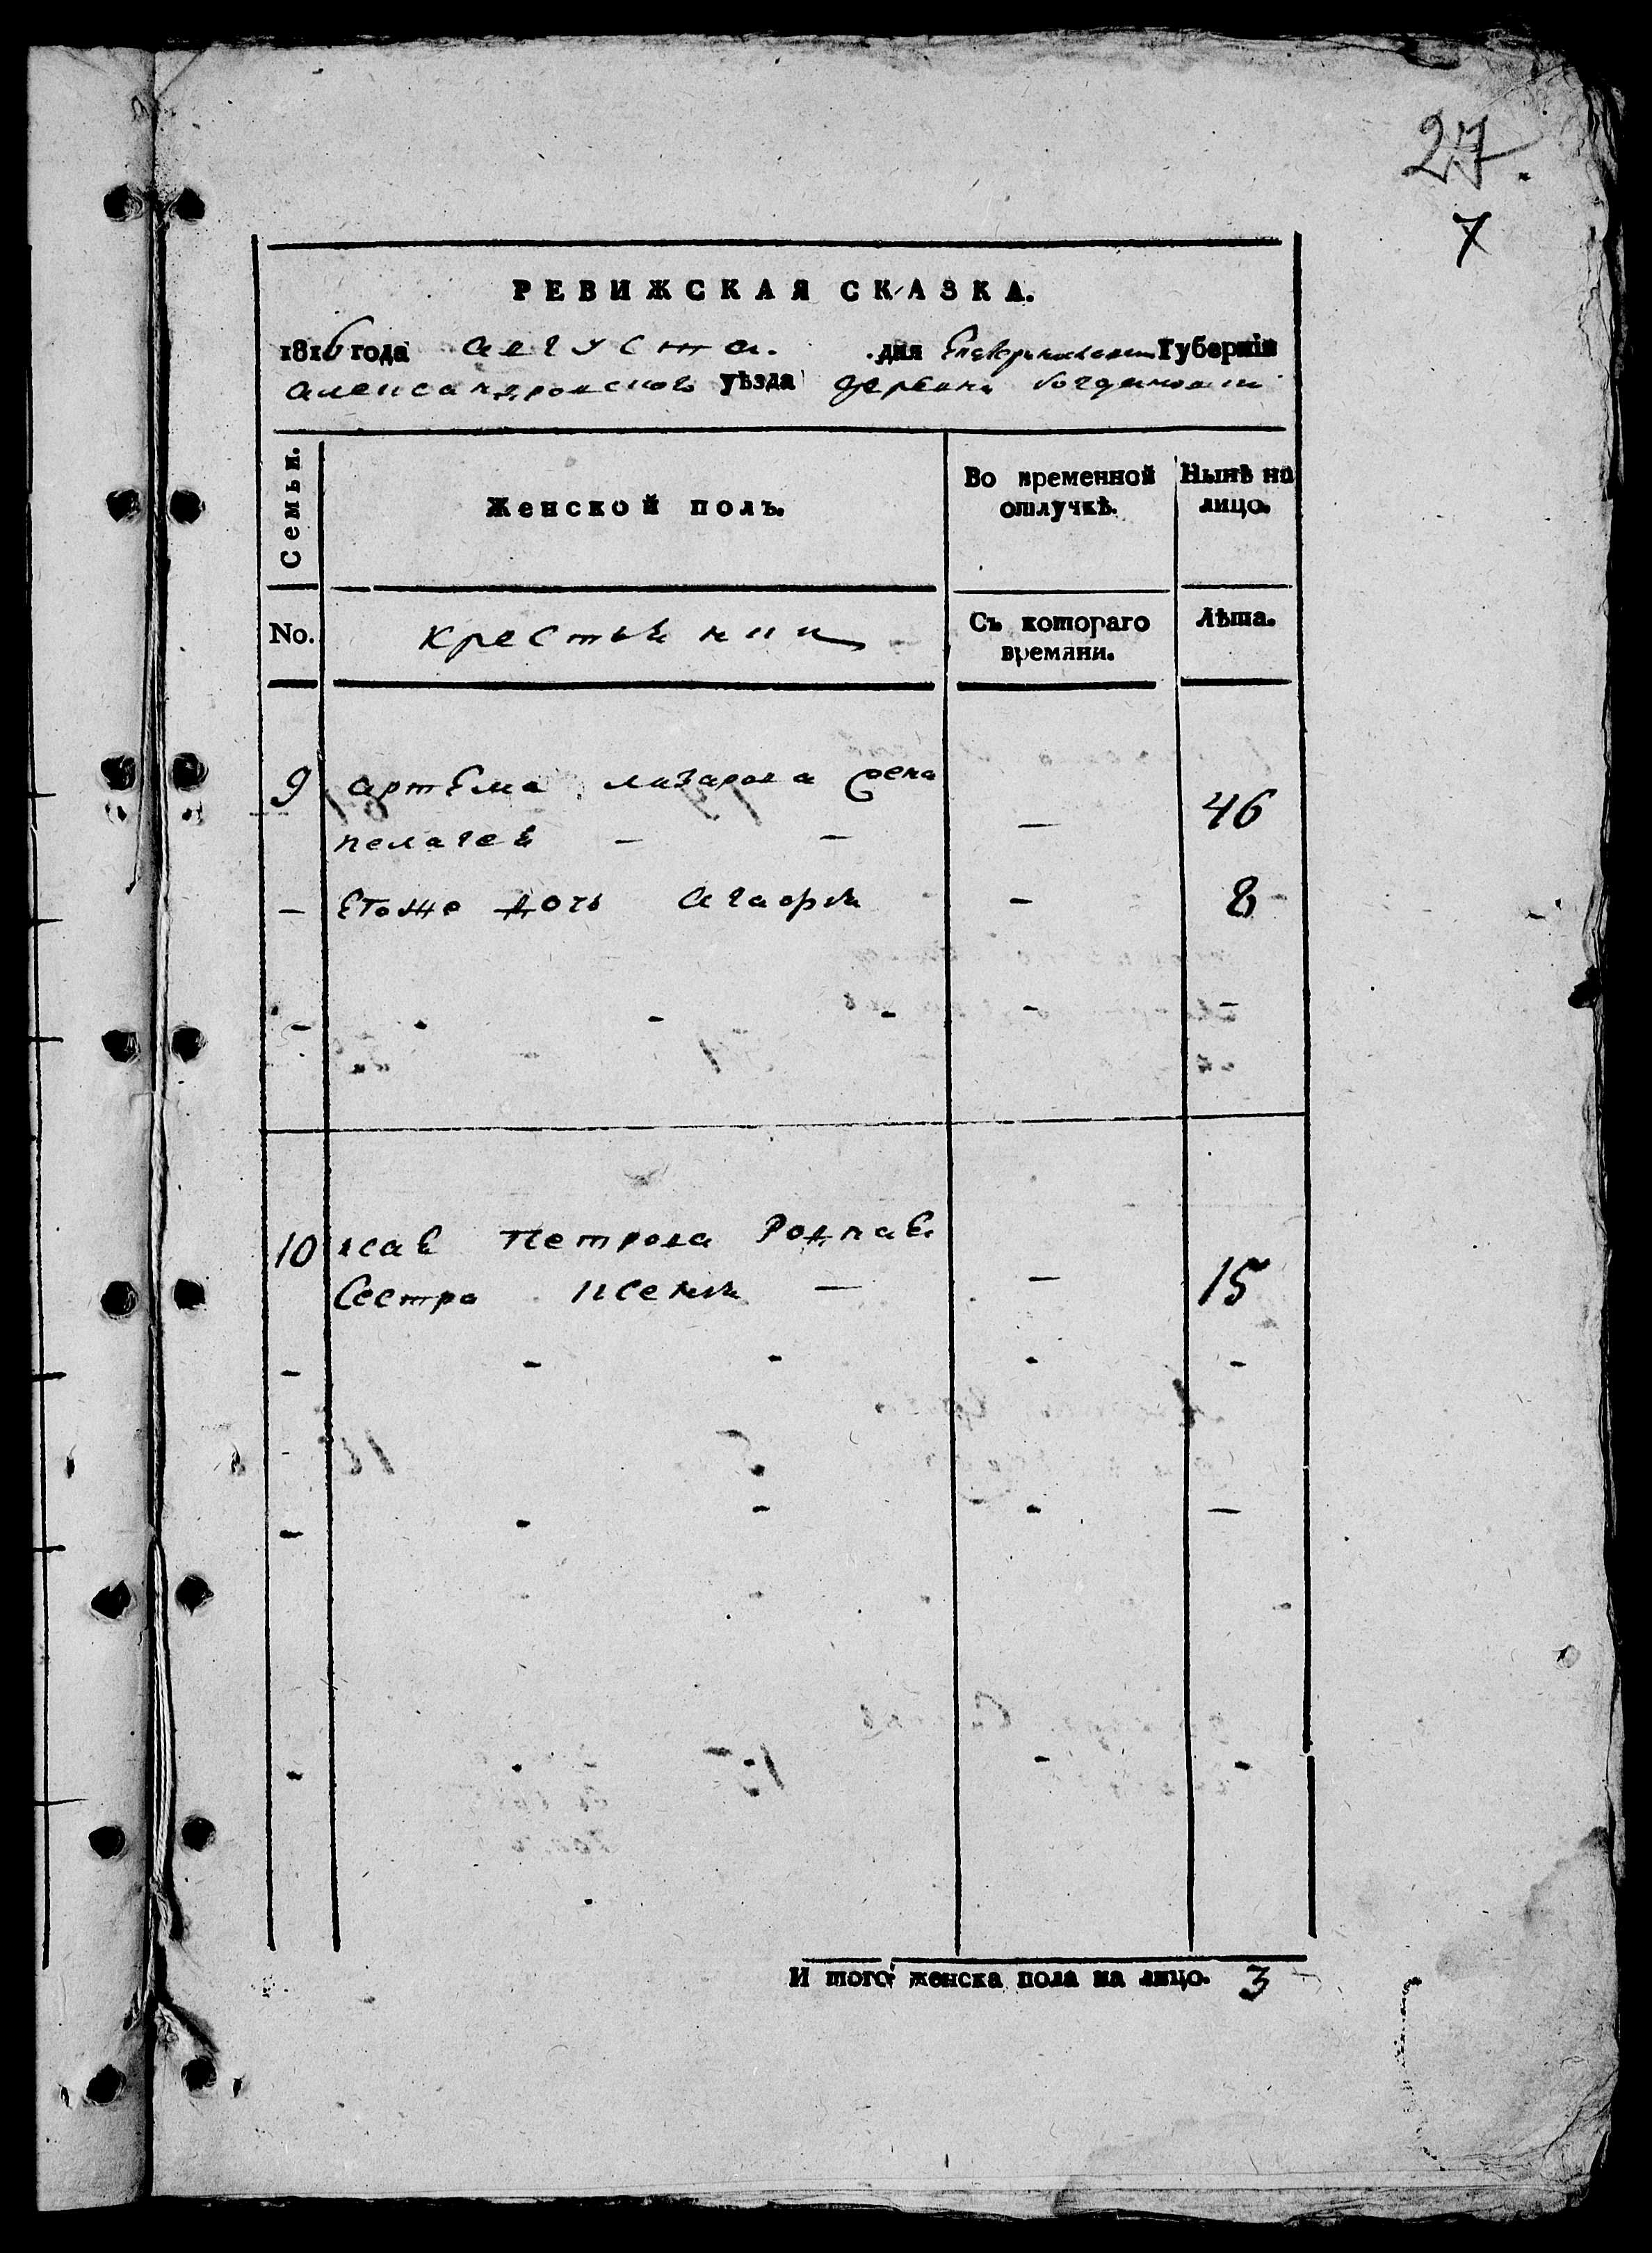 27.
7
РЕВИЖСКАЯ СКАЗКА.
1816 года августа дня Екатеринославской Губернiи
александровского уѣзда деревни богдановки
Семьи.
Женской полъ.
Во временной отлучкѣ.
Нынѣ на лицо.
No.
крестьянки
Съ котораго времяни.
Лѣта.
9 артема лазарева жена
пелагея — — — 46
— Егоже дочь агафия - 8
- - - - - -
10 исая Петрова Родная
Сестра ксения — — 15
- - - - -
- - - - —
- - - -
И того женска пола на лицо. 3